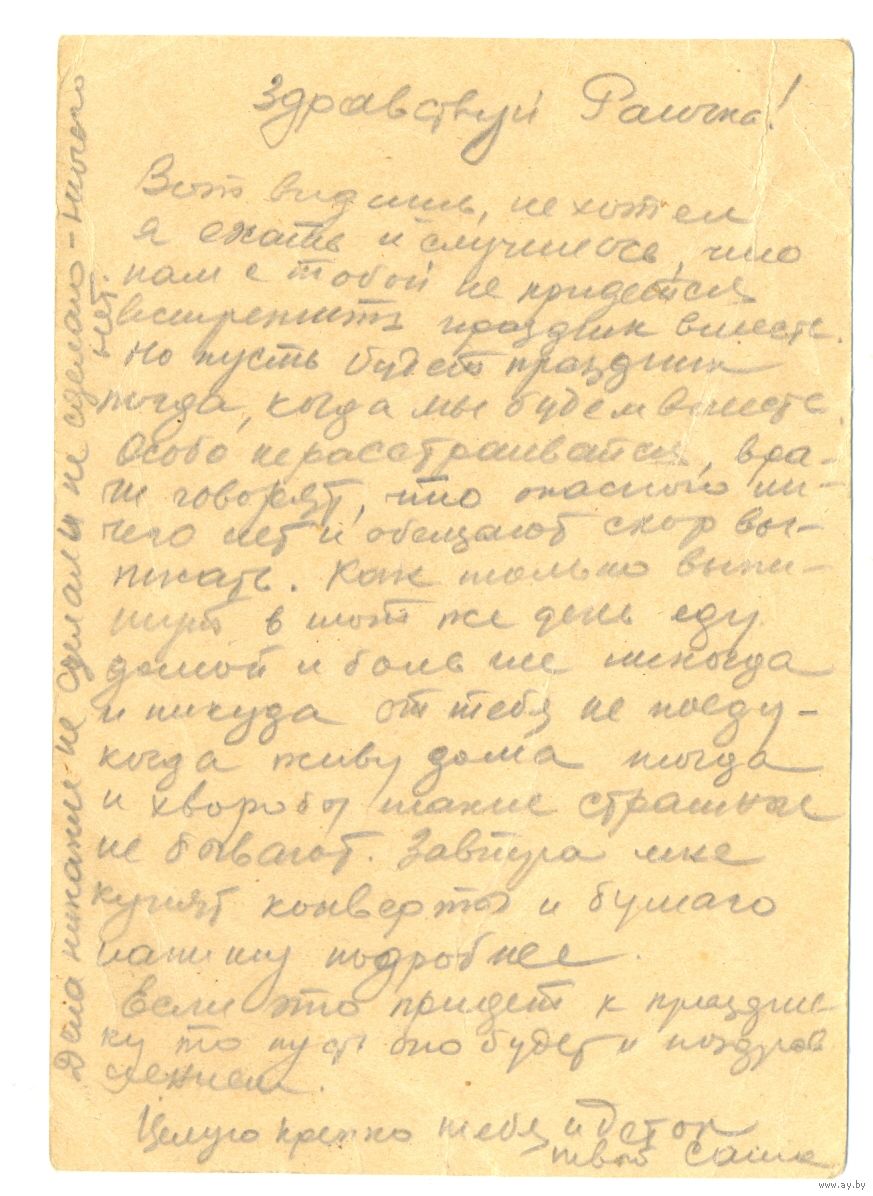 Здравствуй Раичка!
Вот видишь, не хотел
я ехать и случилось, что
нам с тобой не придется
встретить праздник вместе.
Но пусть будет праздник
тогда, когда мы будем вместе
Особо не расстраивайся, вра-
чи говорят, что опасного ни-
чего нет и обещают скор вы-
писать. Как только выпи-
шут в тот же день еду
домой и больше никогда
и никуда от тебя не поеду-
когда живу дома тогда
и хворобы такие страшные
не бывают. Завтра мне
купят конверты и бумаго
напишу подробнее.
Если это придет к праздни-
ку то пусть оно будет и поздрав
лением.
Целую крепко тебя и деток
твой Саша
Дела никакие не сделал и не сделаю - ничего
нет.
www.ay.by